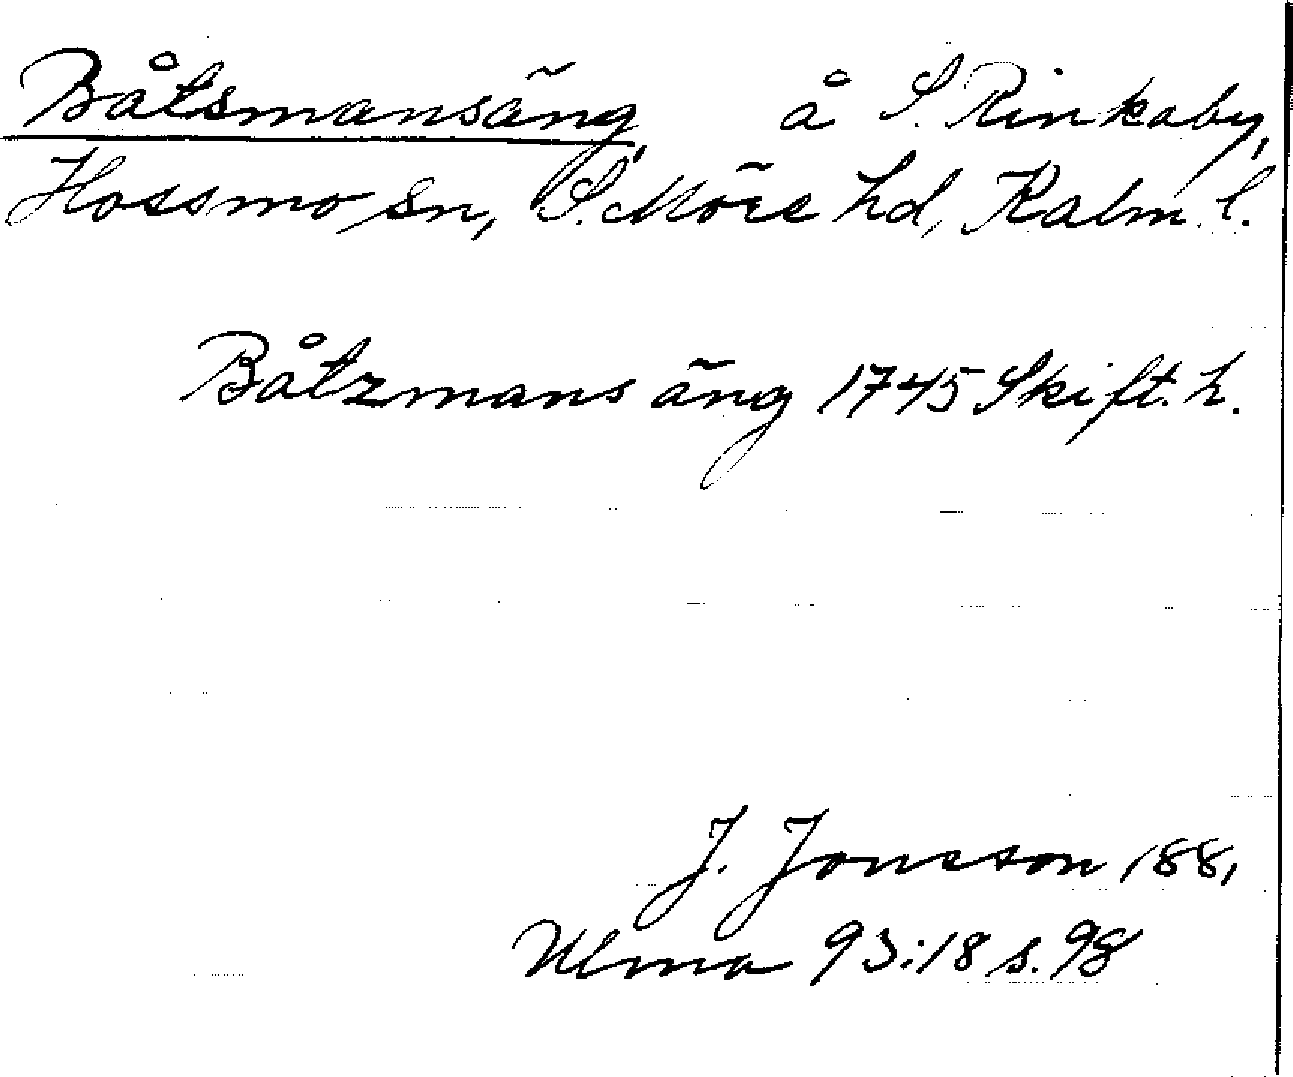 Båtsmansäng, å S. Rinkaby,
Hossmo sn, S. Möre hd, Kalm. l.
Båtzmans äng 1745 Skift. h.
J. Jonsson 1881
Ulma 93:18 s. 98